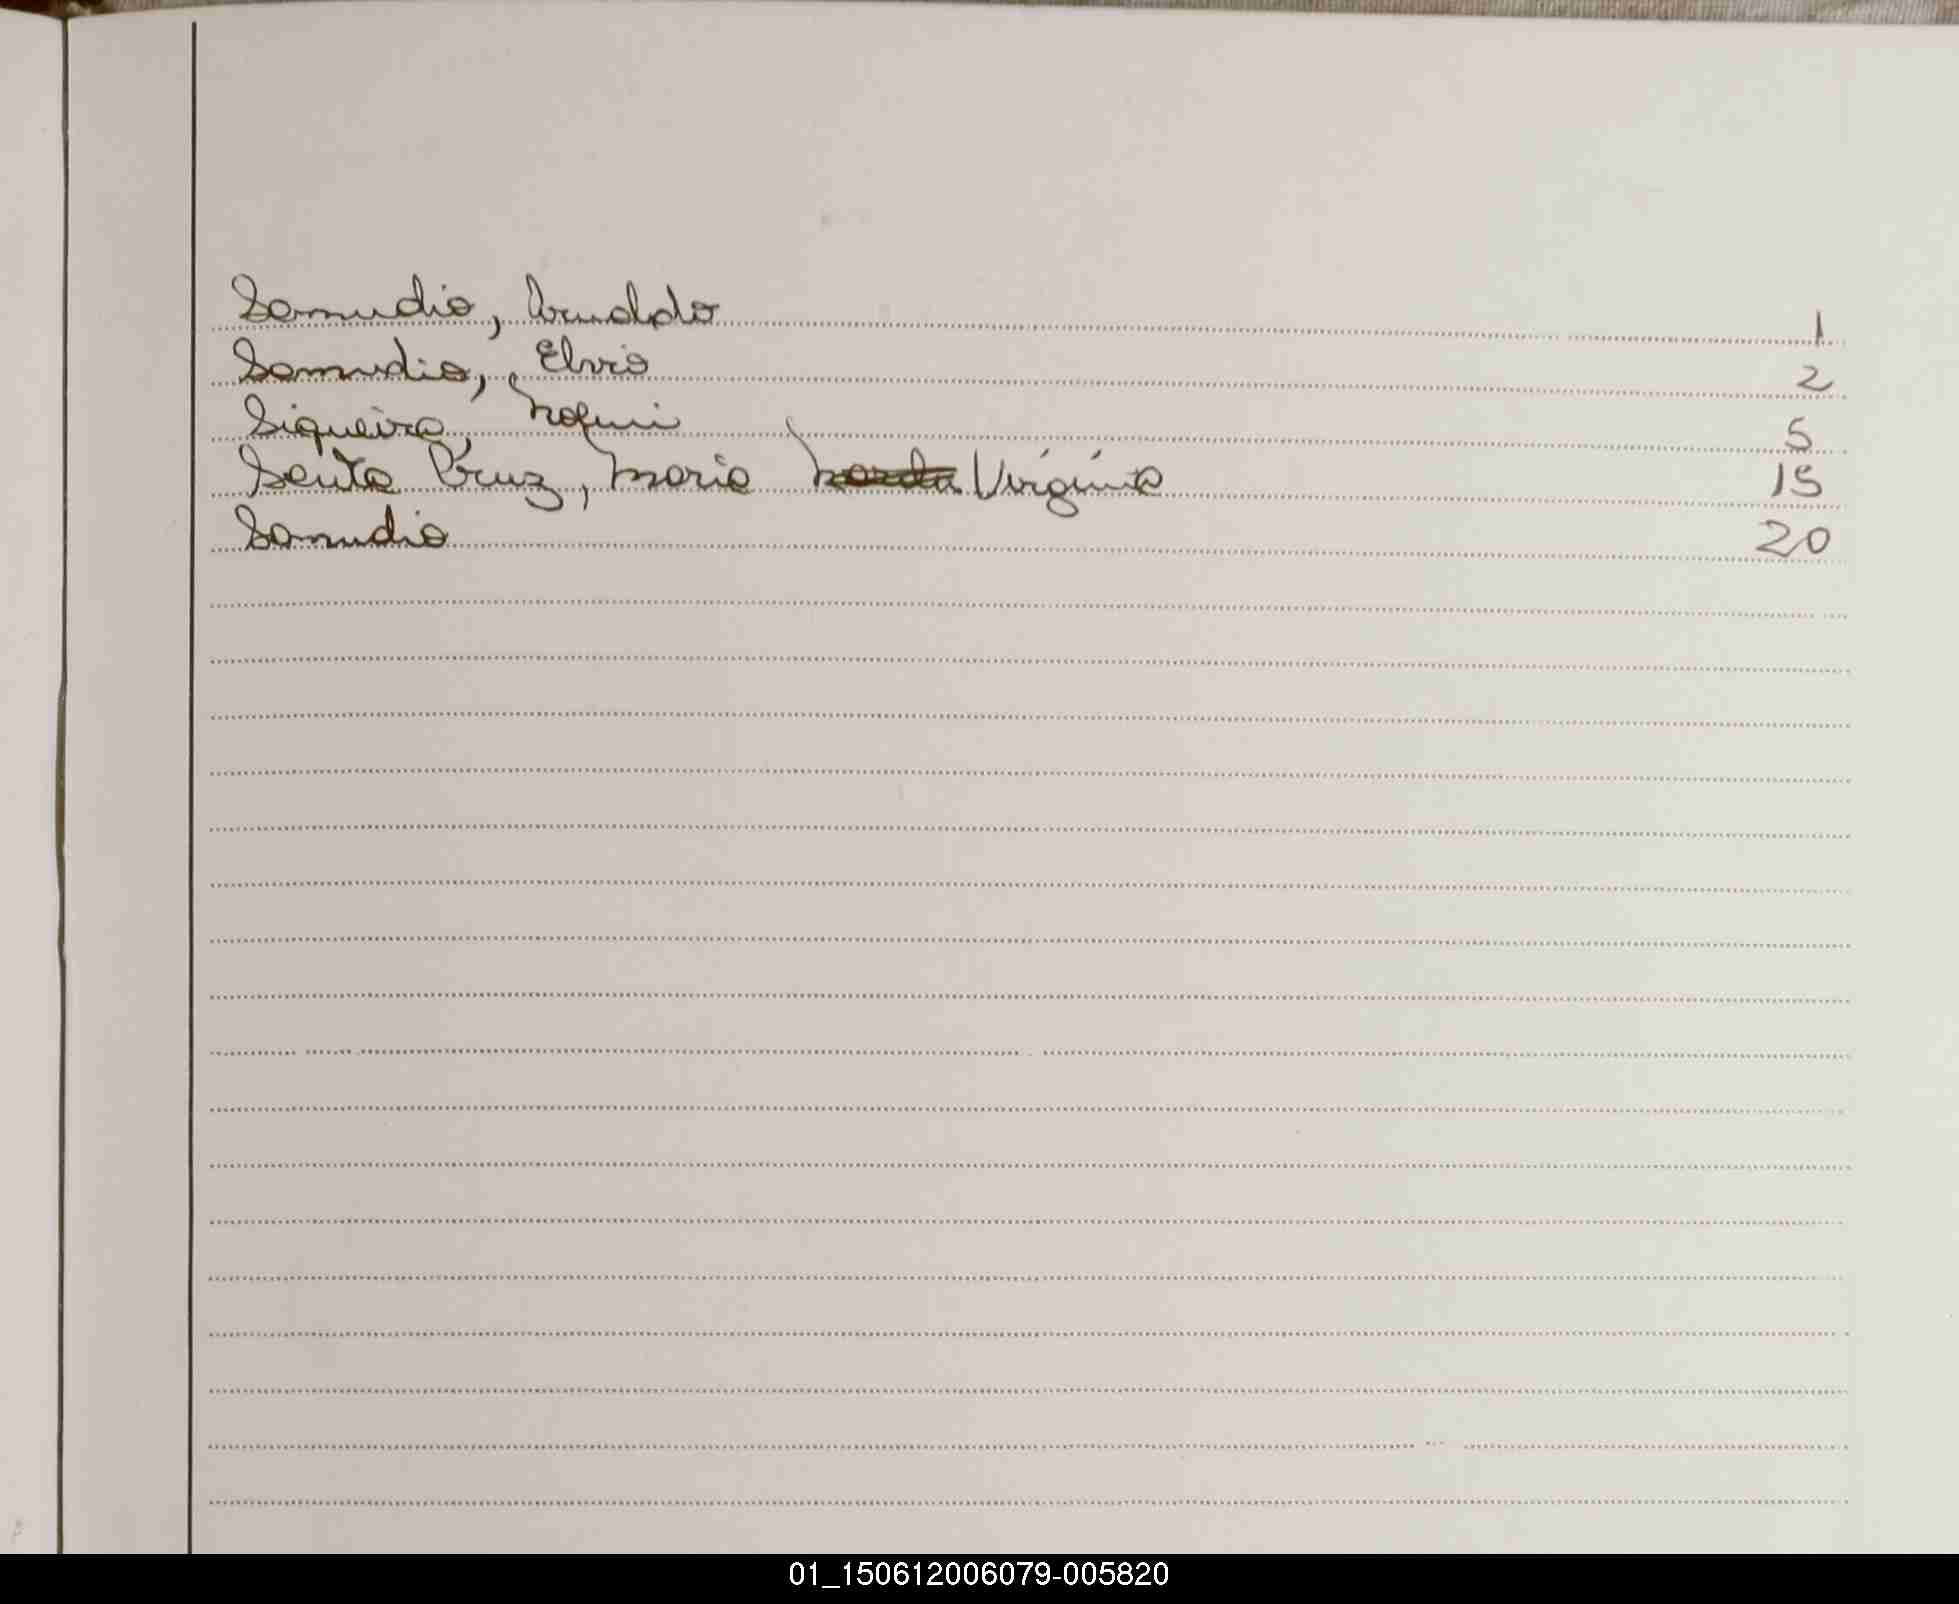 Samudio, Arnaldo 1
Samudio, Elvio 2
Siqueira, 5
Santa Cruz, Maria Virginia 15
Samudio 20
01_150612006079-005820